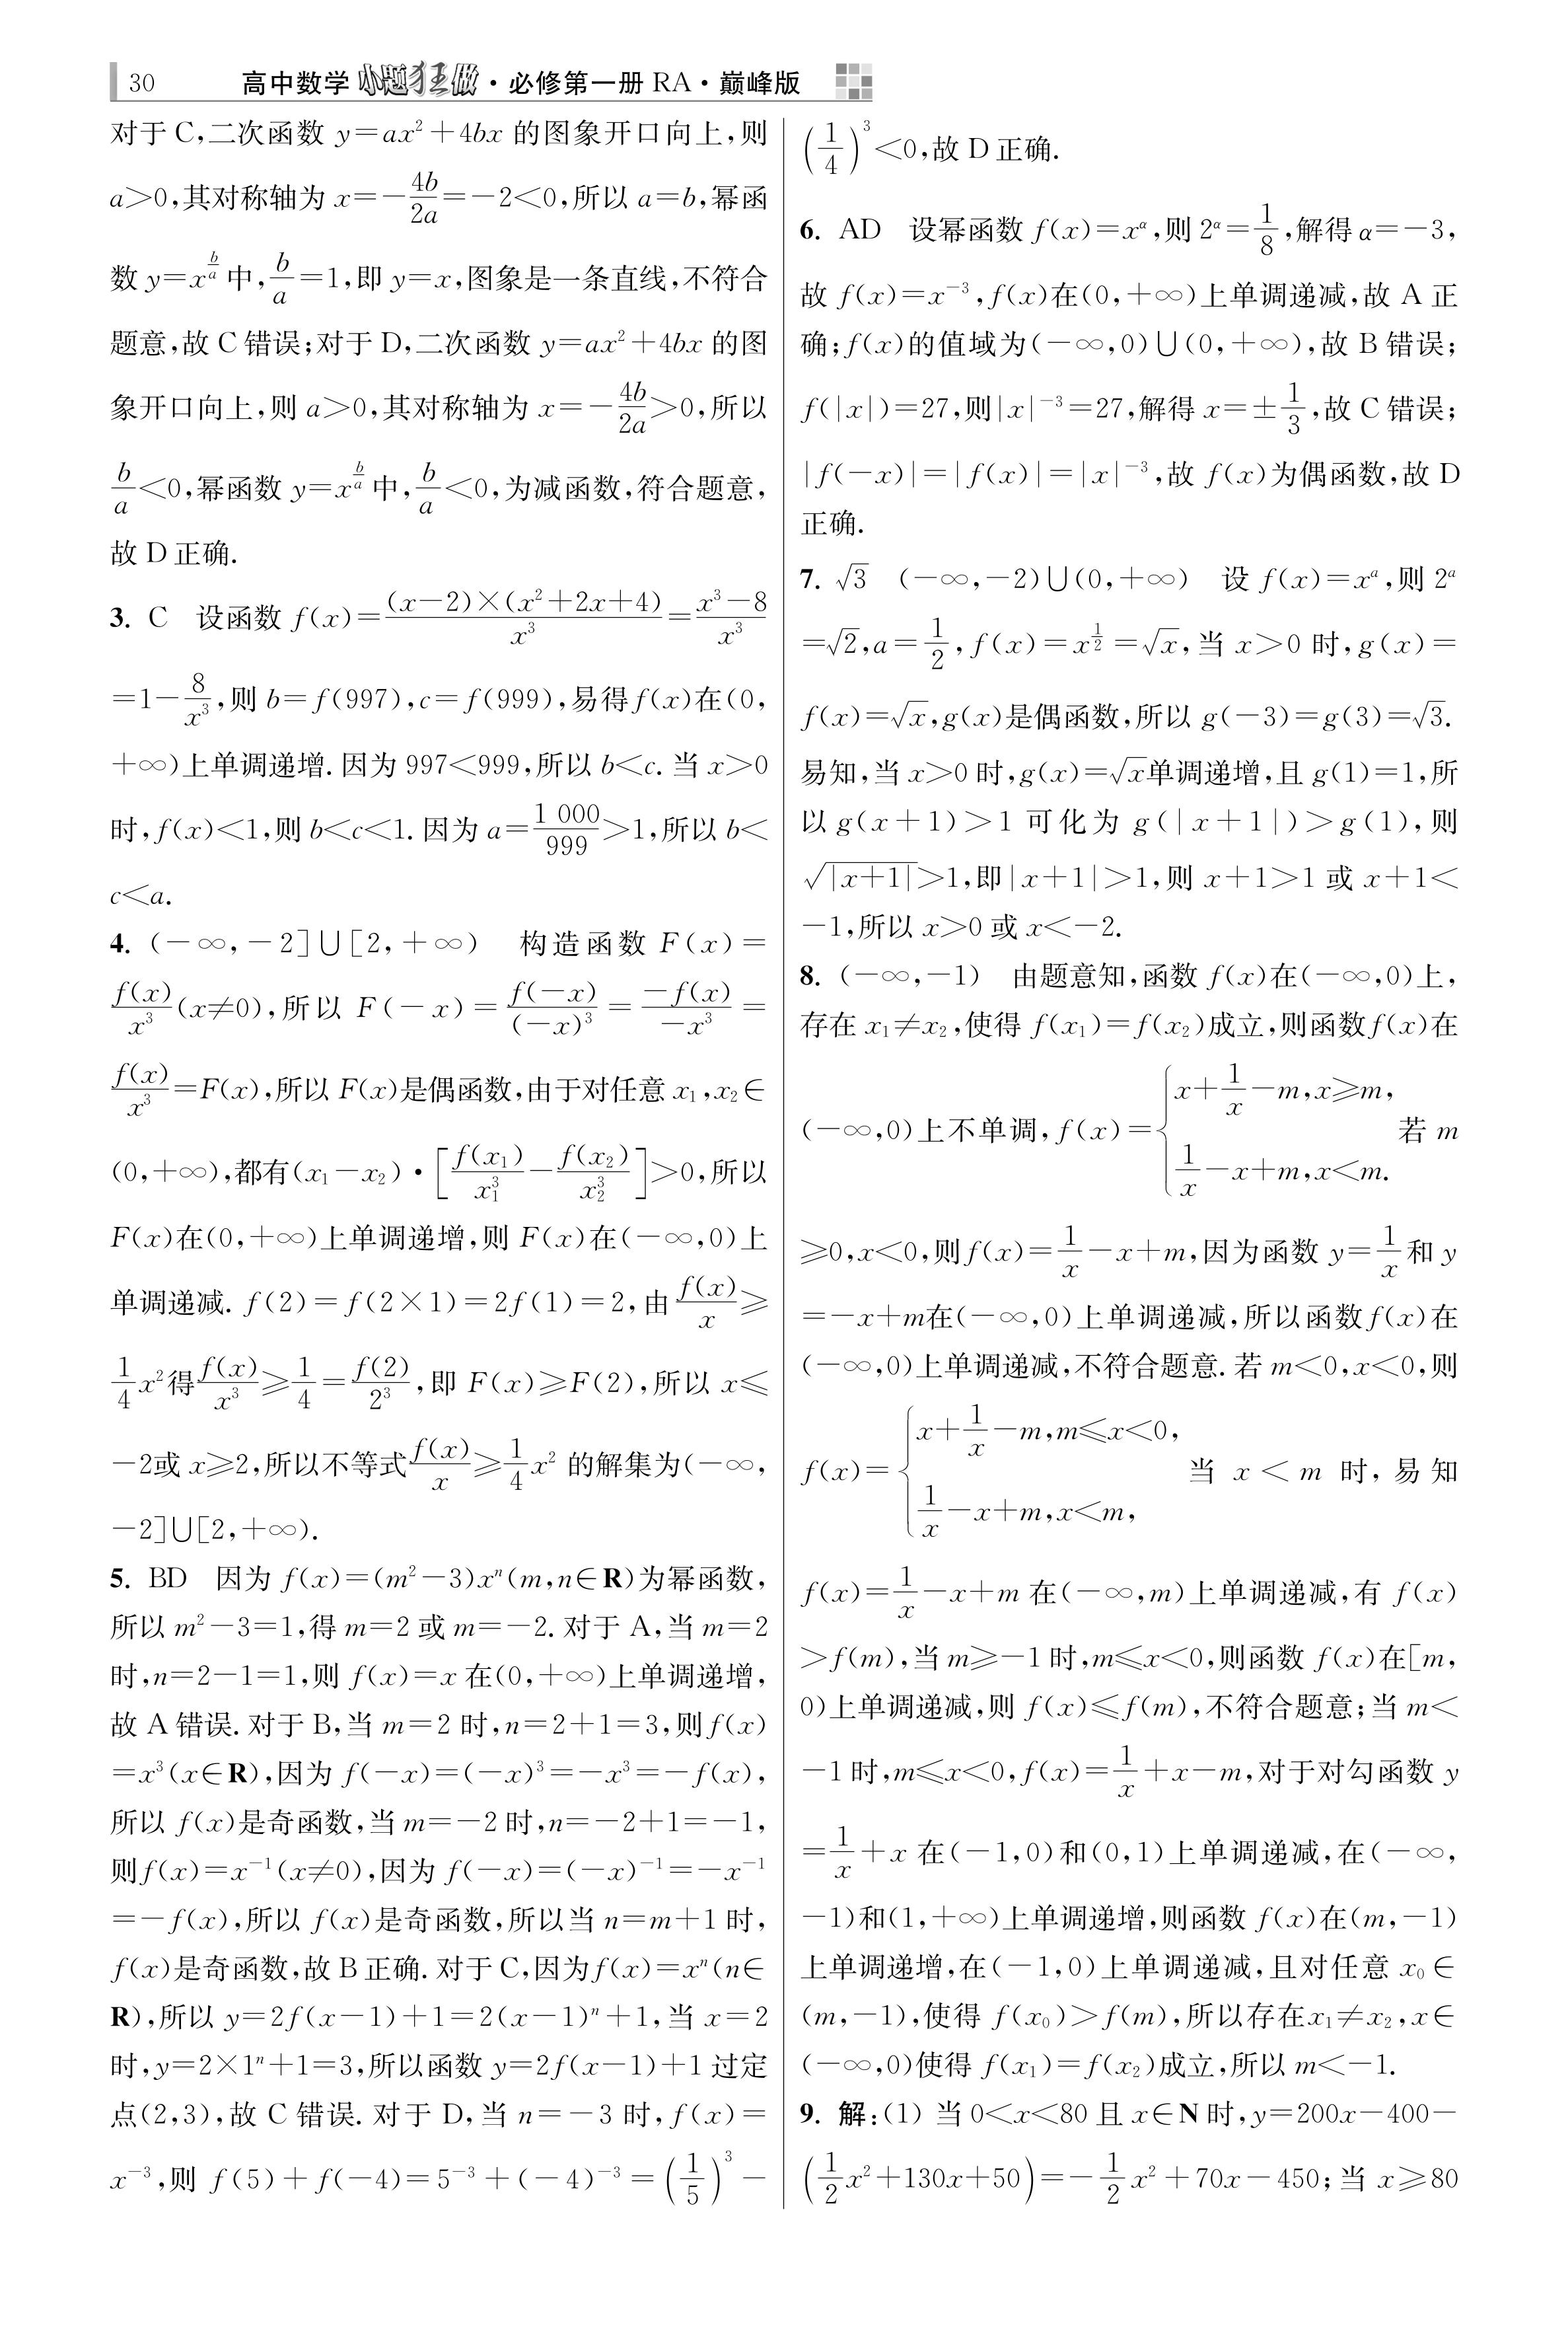 30 高中数学小题狂做·必修第一册 RA·巅峰版
对于C,二次函数 y=ax²+4bx 的图象开口向上,则
a>0,其对称轴为 x=-4b/2a=-2<0,所以 a=b,幂函
数 y=x^(b/a) 中,b/a=1,即 y=x,图象是一条直线,不符合
题意,故 C 错误;对于 D,二次函数 y=ax²+4bx 的图
象开口向上,则 a>0,其对称轴为 x=-4b/2a>0,所以
b/a<0,幂函数 y=x^(b/a) 中,b/a<0,为减函数,符合题意,
故 D 正确.
3. C 设函数 f(x)=(x-2)×(x²+2x+4)/x³=(x³-8)/x³
=1-8/x³,则 b=f(997),c=f(999),易得f(x)在(0,
+∞)上单调递增.因为 997<999,所以 b<c.当 x>0
时,f(x)<1,则 b<c<1.因为 a=1 000/999>1,所以 b<
c<a.
4. (-∞,-2]∪[2,+∞) 构造函数 F(x)=
f(x)/x³(x≠0),所以 F(-x)=f(-x)/(-x)³=-f(x)/-x³=
f(x)/x³=F(x),所以 F(x)是偶函数,由于对任意 x₁,x₂∈
(0,+∞),都有(x₁-x₂)·[f(x₁)/x₁³-f(x₂)/x₂³]>0,所以
F(x)在(0,+∞)上单调递增,则 F(x)在(-∞,0)上
单调递减. f(2)=f(2×1)=2f(1)=2,由f(x)/x≥
1/4x²得f(x)/x³≥1/4=f(2)/2³,即 F(x)≥F(2),所以 x≤
-2或 x≥2,所以不等式f(x)/x≥1/4x² 的解集为(-∞,
-2]∪[2,+∞).
5. BD 因为 f(x)=(m²-3)xⁿ(m,n∈R)为幂函数,
所以 m²-3=1,得 m=2 或 m=-2.对于 A,当 m=2
时,n=2-1=1,则 f(x)=x 在(0,+∞)上单调递增,
故 A 错误.对于 B,当 m=2 时,n=2+1=3,则 f(x)
=x³(x∈R),因为 f(-x)=(-x)³=-x³=-f(x),
所以 f(x)是奇函数,当 m=-2 时,n=-2+1=-1,
则f(x)=x⁻¹(x≠0),因为 f(-x)=(-x)⁻¹=-x⁻¹
=-f(x),所以 f(x)是奇函数,所以当 n=m+1 时,
f(x)是奇函数,故 B 正确.对于 C,因为f(x)=xⁿ(n∈
R),所以 y=2f(x-1)+1=2(x-1)ⁿ+1,当 x=2
时,y=2×1ⁿ+1=3,所以函数 y=2f(x-1)+1 过定
点(2,3),故 C 错误.对于 D,当 n=-3 时,f(x)=
x⁻³,则 f(5)+f(-4)=5⁻³+(-4)⁻³=(1/5)³-
(1/4)³<0,故 D 正确.
6. AD 设幂函数 f(x)=x^α,则 2^α=1/8,解得 α=-3,
故 f(x)=x⁻³,f(x)在(0,+∞)上单调递减,故 A 正
确;f(x)的值域为(-∞,0)∪(0,+∞),故 B 错误;
f(|x|)=27,则|x|⁻³=27,解得 x=±1/3,故 C 错误;
|f(-x)|=|f(x)|=|x|⁻³,故 f(x)为偶函数,故 D
正确.
7. √3 (-∞,-2)∪(0,+∞) 设 f(x)=x^a,则 2^a
=√2,a=1/2,f(x)=x^(1/2)=√x,当 x>0 时,g(x)=
f(x)=√x,g(x)是偶函数,所以 g(-3)=g(3)=√3.
易知,当 x>0 时,g(x)=√x单调递增,且 g(1)=1,所
以 g(x+1)>1 可化为 g(|x+1|)>g(1),则
√|x+1|>1,即|x+1|>1,则 x+1>1 或 x+1<
-1,所以 x>0 或 x<-2.
8. (-∞,-1) 由题意知,函数 f(x)在(-∞,0)上,
存在 x₁≠x₂,使得 f(x₁)=f(x₂)成立,则函数f(x)在
(-∞,0)上不单调,f(x)={x+1/x-m,x≥m, 1/x-x+m,x<m. 若 m
≥0,x<0,则f(x)=1/x-x+m,因为函数 y=1/x和 y
=-x+m在(-∞,0)上单调递减,所以函数f(x)在
(-∞,0)上单调递减,不符合题意.若 m<0,x<0,则
f(x)={x+1/x-m,m≤x<0, 1/x-x+m,x<m, 当 x<m 时,易知
f(x)=1/x-x+m 在(-∞,m)上单调递减,有 f(x)
>f(m),当 m≥-1 时,m≤x<0,则函数 f(x)在[m,
0)上单调递减,则 f(x)≤f(m),不符合题意;当 m<
-1 时,m≤x<0,f(x)=1/x+x-m,对于对勾函数 y
=1/x+x 在(-1,0)和(0,1)上单调递减,在(-∞,
-1)和(1,+∞)上单调递增,则函数 f(x)在(m,-1)
上单调递增,在(-1,0)上单调递减,且对任意 x₀∈
(m,-1),使得 f(x₀)>f(m),所以存在x₁≠x₂,x∈
(-∞,0)使得 f(x₁)=f(x₂)成立,所以 m<-1.
9. 解:(1) 当 0<x<80 且 x∈N 时,y=200x-400-
(1/2x²+130x+50)=-1/2x²+70x-450;当 x≥80